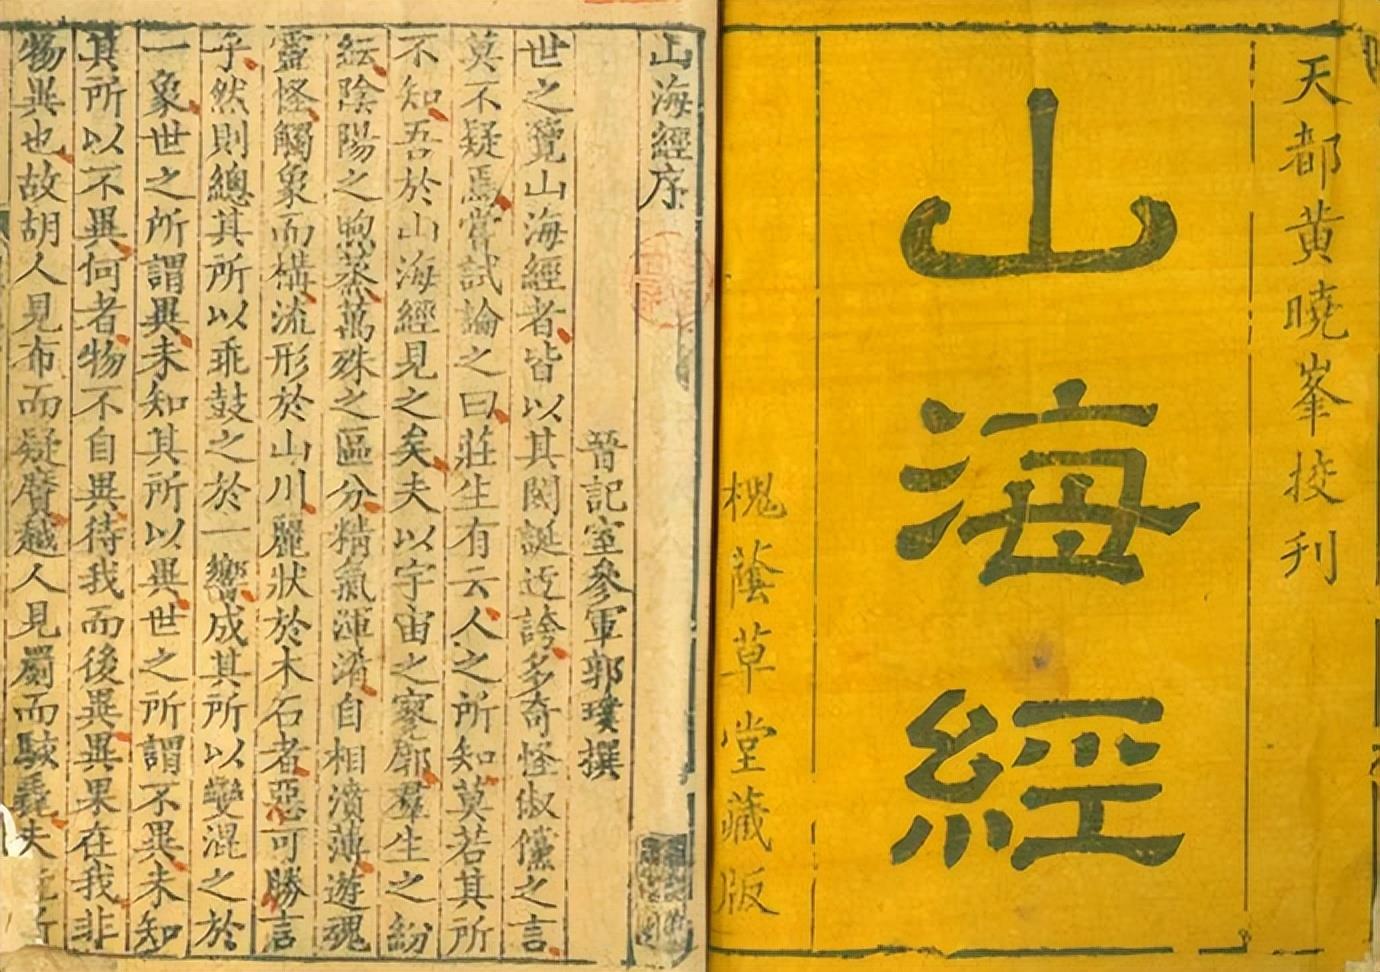 天都黄曉峯挍刋
山海經
槐蔭草堂藏版
山海經序
晉記室參軍郭璞撰
世之覽山海經者皆以其閎誕迃誇多奇怪俶儻之言
莫不疑焉嘗試論之曰莊生有云人之所知莫若其所
不知吾於山海經見之矣夫以宇宙之寥廓羣生之紛
紜陰陽之煦蒸萬殊之區分精氣渾淆自相濆薄遊魂
靈怪觸象而構流形於山川麗狀於木石者惡可勝言
乎然則總其所以乖鼓之於一響成其所以變混之於
一象世之所謂異未知其所以異世之所謂不異未知
其所以不異何者物不自異待我而後異異果在我非
物異也故胡人見布而疑黂越人見罽而駭毳夫